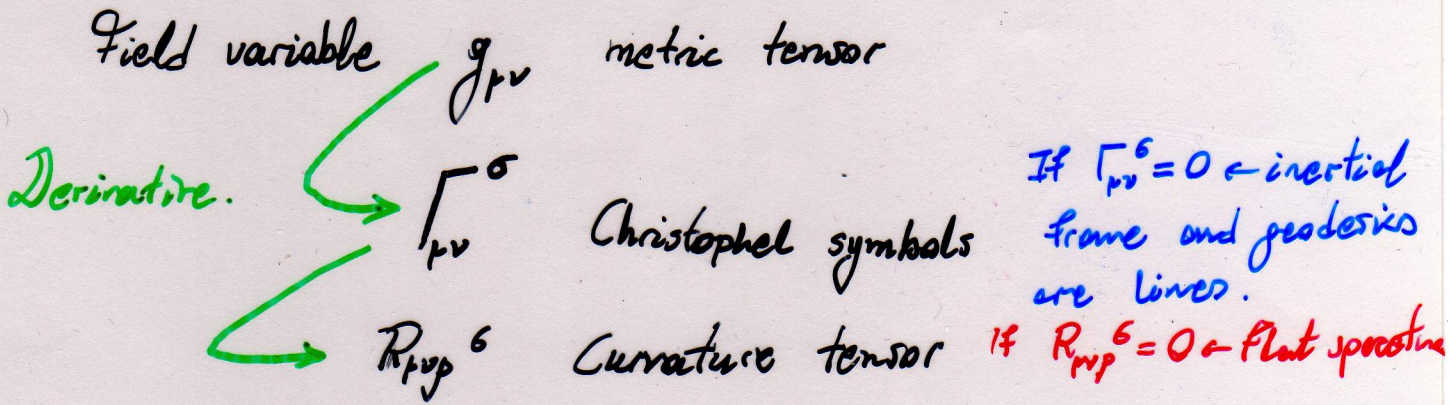 Field variable g_μν metric tensor
Derivative.
Γ_μν^σ Christophel symbols
If Γ_μν^σ = 0 ← inertial
frame and geodesics
are lines.
R_μνρ^σ Curvature tensor If R_μνρ^σ = 0 ← Flat spacetime